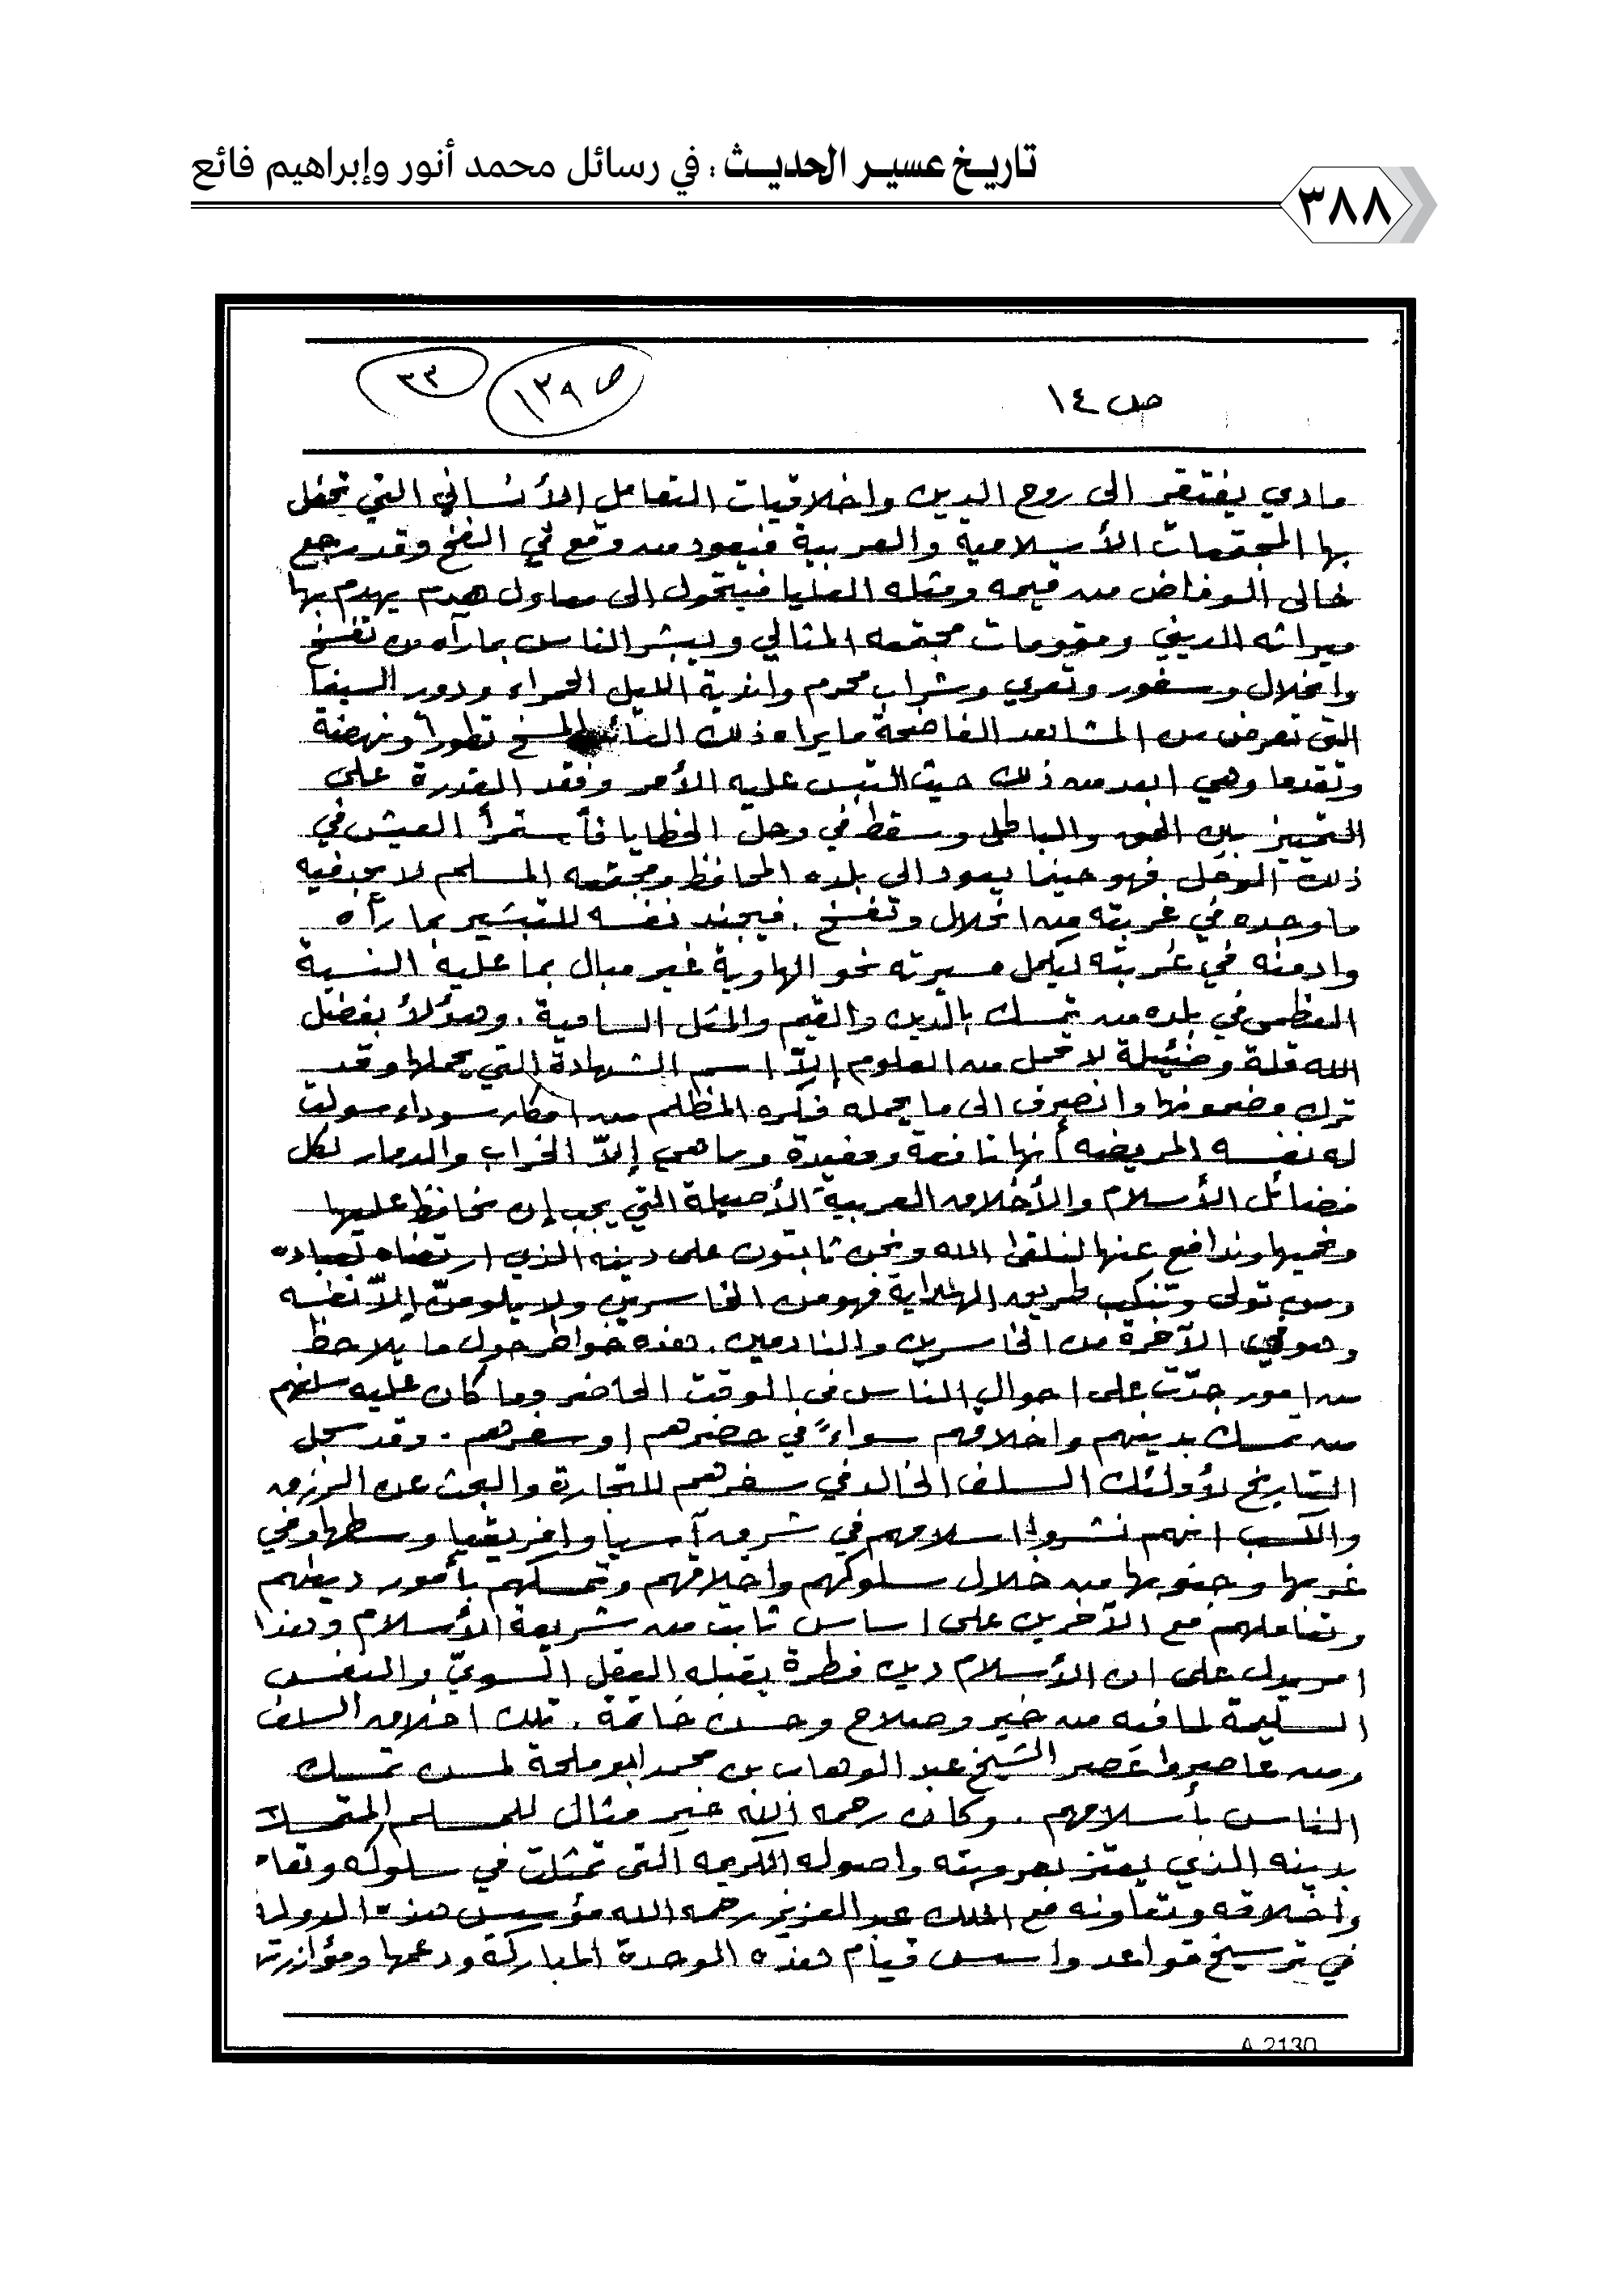 تاريخ عسير الحديث : في رسائل محمد أنور وإبراهيم فائع
٣٨٨
ص ١٤
ص ١٣٩
٣٣
مادي يفتقر الى روح الدين واخلاقيات التعامل الأنساني التي تحفل
بها المجتمعات الأسلامية والعربية فيعود من وقع في الفخ وقد رجع
خالى الوفاض من قيمه ومثله العليا فيتحول الى معاول هدم يهدم بها
ميراثه الديني ومقومات مجتمعه المثالي ويبشر الناس بما رآه من تفسخ
وانحلال وسفور وتعري وشراب محرم واندية الليل الحمراء ودور السينما
التي تعرض من المشاهد الفاضحة ما يراه ذلك المسخ تطوراً ونهضة
وتقدما وهي ابعد من ذلك حيث التبس عليه الأمر وفقد القدرة على
التمييز بين الحق والباطل وسقط في وحل الخطايا فأستمرأ العيش في
ذلك الوحل فهو حينما يعود الى بلده المحافظ ومجتمعه المسلم لا يجد فيه
ما وجده في غربته من انحلال وتفسخ . فيجند نفسه للتبشير بما رأه
وادمنه في غربته ليكمل مسيرته نحو الهاوية غير مبال بما عليه النسبة
العظمى في بلده من تمسك بالدين والقيم والمثل السامية . وهؤلأ بفضل
الله قلة وضئيلة لا تحمل من العلوم إلاّ اسم الشهادة التي يحملها وقد
ترك مضمونها وانصرف الى ما يحمله فكره المظلم من افكار سوداء سولت
له نفسه المريضه أنها نافعة ومفيدة وما هي إلاّ الخراب والدمار لكل
فضائل الأسلام والأخلاق العربية الأصيلة التي يجب إن نحافظ عليها
ونحميها وندافع عنها لنلقى الله ونحن ثابتون على دينه الذي ارتضاه لعباده
ومن تولى وتنكب طريق الهداية فهو من الخاسرين ولا يلومنّ إلاّ نفسه
وهو في الآخرة من الخاسرين والنادمين . هذه خواطر حول ما يلاحظ
من امور جدّت على احوال الناس في الوقت الحاضر وما كان عليه سلفهم
من تمسك بدينهم واخلاقهم سواءً في حضرهم او سفرهم . وقد سجل
التاريخ لأولئك السلف الخالد في سفرهم للتجارة والبحث عن الرزق
والكسب انهم نشروا اسلامهم في شرق آسيا وافريقيا وسطها وفي
غربها وجنوبها من خلال سلوكهم واخلاقهم وتمسكهم بأمور دينهم
وتعاملهم مع الآخرين على اساس ثابت من شريعة الأسلام وهذا
امر يدل على ان الأسلام دين فطرة يقبله العقل السويّ والنفس
السليمة لما فيه من خير وصلاح وحسن خاتمة . تلك اخلاق السلف
ومن عاصروا عصر الشيخ عبد الوهاب بن محمد ابو ملحة لمسن تمسك
الناس بأسلامهم . وكان رحمه الله خير مثال للمسلم المتمسك
بدينه الذي يعتز بعروبته واصوله الكريمه التى تمثلت في سلوكه وتعا
واخلاقه وتعاونه مع الملك عبد العزيز رحمه الله مؤسس هذه الدولة
في ترسيخ قواعد واسس قيام هذه الوحدة المباركة ودعمها ومؤازرتها
A 2130